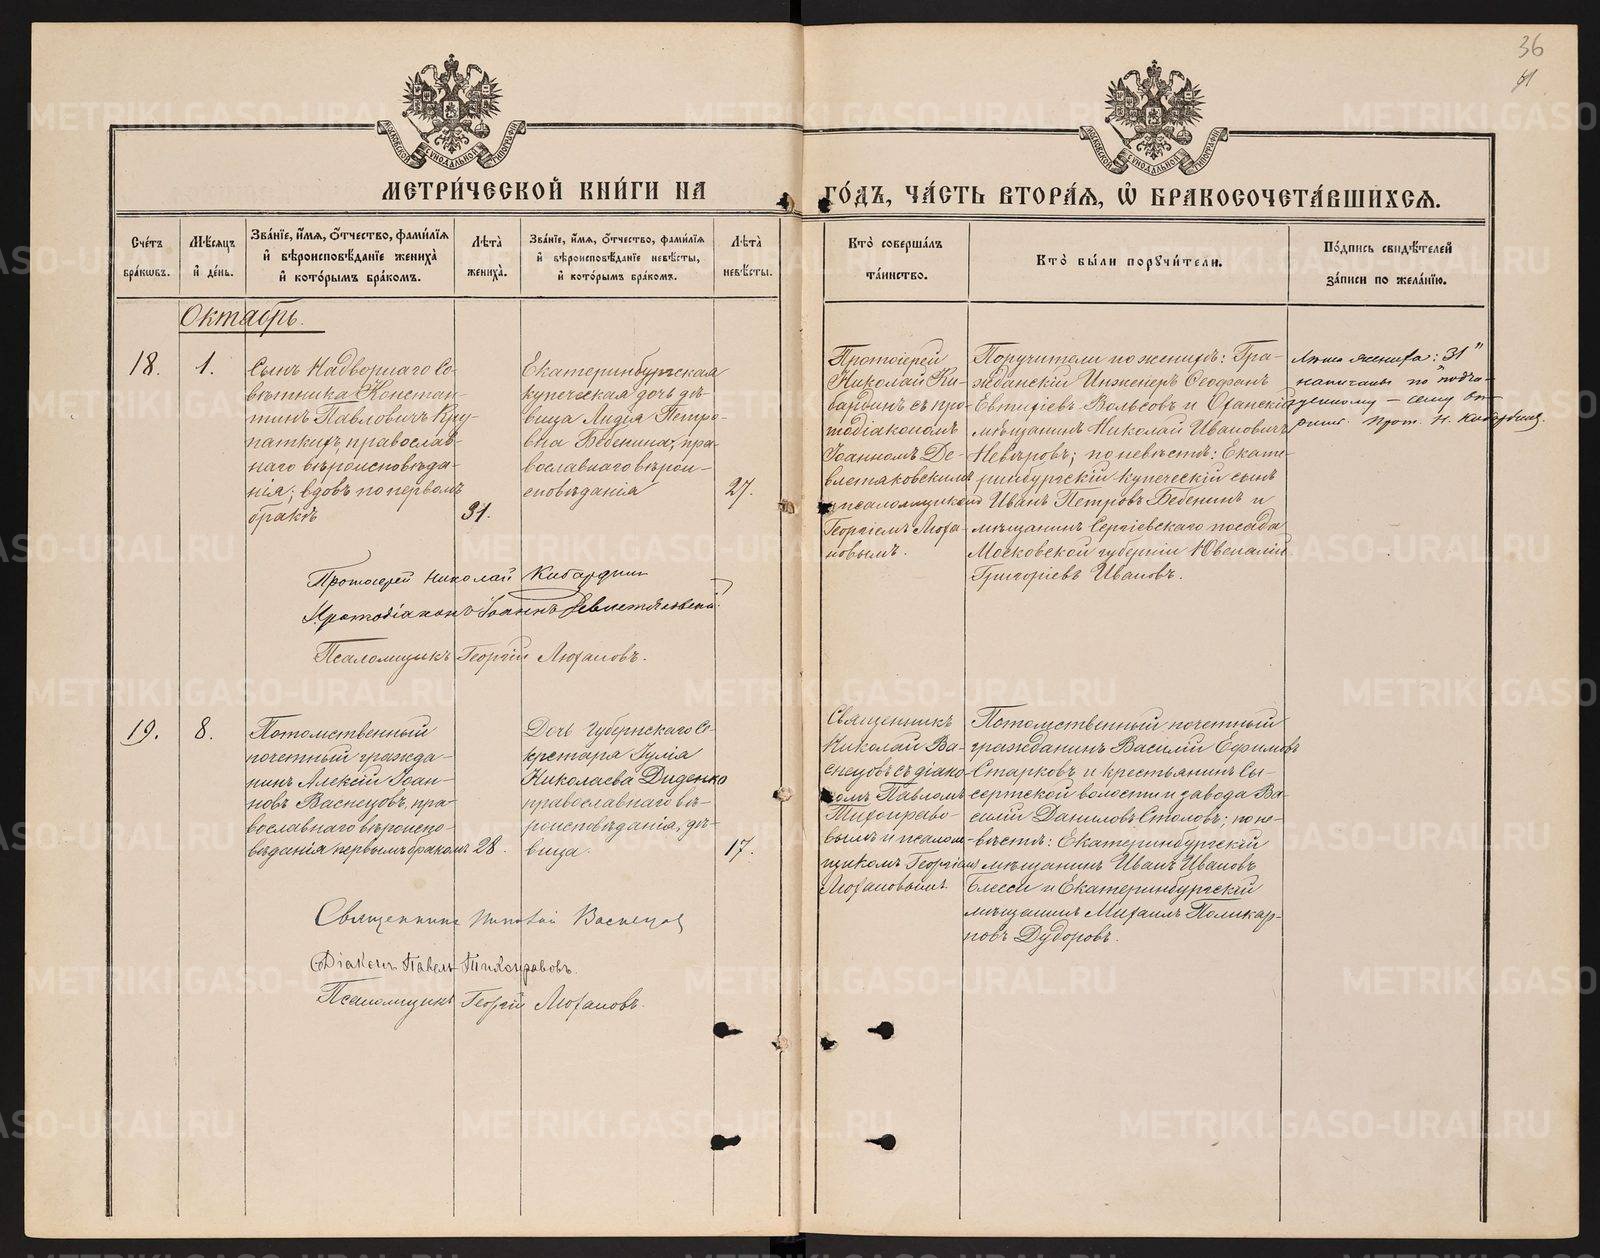 36
МЕТРИ́ЧЕСКОЙ КНИ́ГИ НА
ГО́ДЪ, ЧА́СТЬ ВТОРА́Я, Ѿ БРАКОСОЧЕТА́ВШИХСЯ.
Сче́тъ бра́кѡвъ.
Мѣ́сяцъ и҆ де́нь.
Зва́нїе, и҆́мя, о҆́тчество, фами́лїя и҆ вѣроисповѣ́данїе жениха̀ и҆ кото́рымъ бра́комъ.
Лѣ́та жениха̀.
Зва́нїе, и҆́мя, о҆́тчество, фами́лїя и҆ вѣроисповѣ́данїе невѣ́сты, и҆ кото́рымъ бра́комъ.
Лѣ́та невѣ́сты.
Кто̀ соверша́лъ та́инство.
Кто̀ бы́ли порꙋчи́тели.
По́дпись свидѣ́телей за́писи по жела́нїю.
Октябрь.
18.
1.
Сынъ Надворнаго Со-
вѣтника Констан-
тинъ Павловичъ Кру-
паткихъ, православ-
наго вѣроисповѣда-
нія; вдовъ по первомъ
бракѣ
31.
Екатеринбургская
купеческая дочь дѣ-
вица Лидія Петро-
вна Бебенина, пра-
вославнаго вѣрои-
сповѣданія
27.
Протоіерей
Николай Ки-
бардинъ съ про-
тодіакономъ
Іоанномъ Де-
влетяковскимъ
и псаломщикомъ
Георгіемъ Люха-
новымъ.
Поручители по женихѣ: Гра-
жданскій Инженеръ Ѳеофанъ
Евтихіевъ Вольсовъ и Оханскій
мѣщанинъ Николай Ивановичъ
Невѣровъ; по невѣстѣ: Екате-
ринбургскій купеческій сынъ
Иванъ Петровъ Бебенинъ и
мѣщанинъ Сергіевскаго посада
Московской губерніи Ювеналій
Григоріевъ Ивановъ.
Лѣта жениха: "31"
написаны по подчи-
щенному — сему
Прот. Н. Кибардинъ.
Протоіерей Николай Кибардинъ
Протодіаконъ Іоаннъ Девлетяковскій.
Псаломщикъ Георгій Люхановъ.
19.
8.
Потомственный
почетный гражда-
нинъ Алексій Іоан-
новъ Васнецовъ, пра-
вославнаго вѣроиспо-
вѣданія первымъ бракомъ
28.
Дочь Губернскаго Се-
кретаря Іулія
Николаева Диденко
православнаго вѣ-
роисповѣданія, дѣ-
вица.
17.
Священникъ
Николай Ва-
снецовъ съ діако-
номъ Павломъ
Тихонраво-
вымъ и псалом-
щикомъ Георгіемъ
Люхановымъ.
Потомственный почетный
гражданинъ Василій Ефимовъ
Старковъ и крестьянинъ Сы-
сертской волости и завода Ва-
силій Даниловъ Столовъ; по не-
вѣстѣ: Екатеринбургскій
мѣщанинъ Иванъ Ивановъ
Блесси и Екатеринбургскій
мѣщанинъ Михаилъ Поликар-
повъ Дудоровъ.
Священникъ Николай Васнецов
Діаконъ Павелъ Тихонравовъ.
Псаломщикъ Георгій Люхановъ.
METRIKI.GASO-URAL.RU